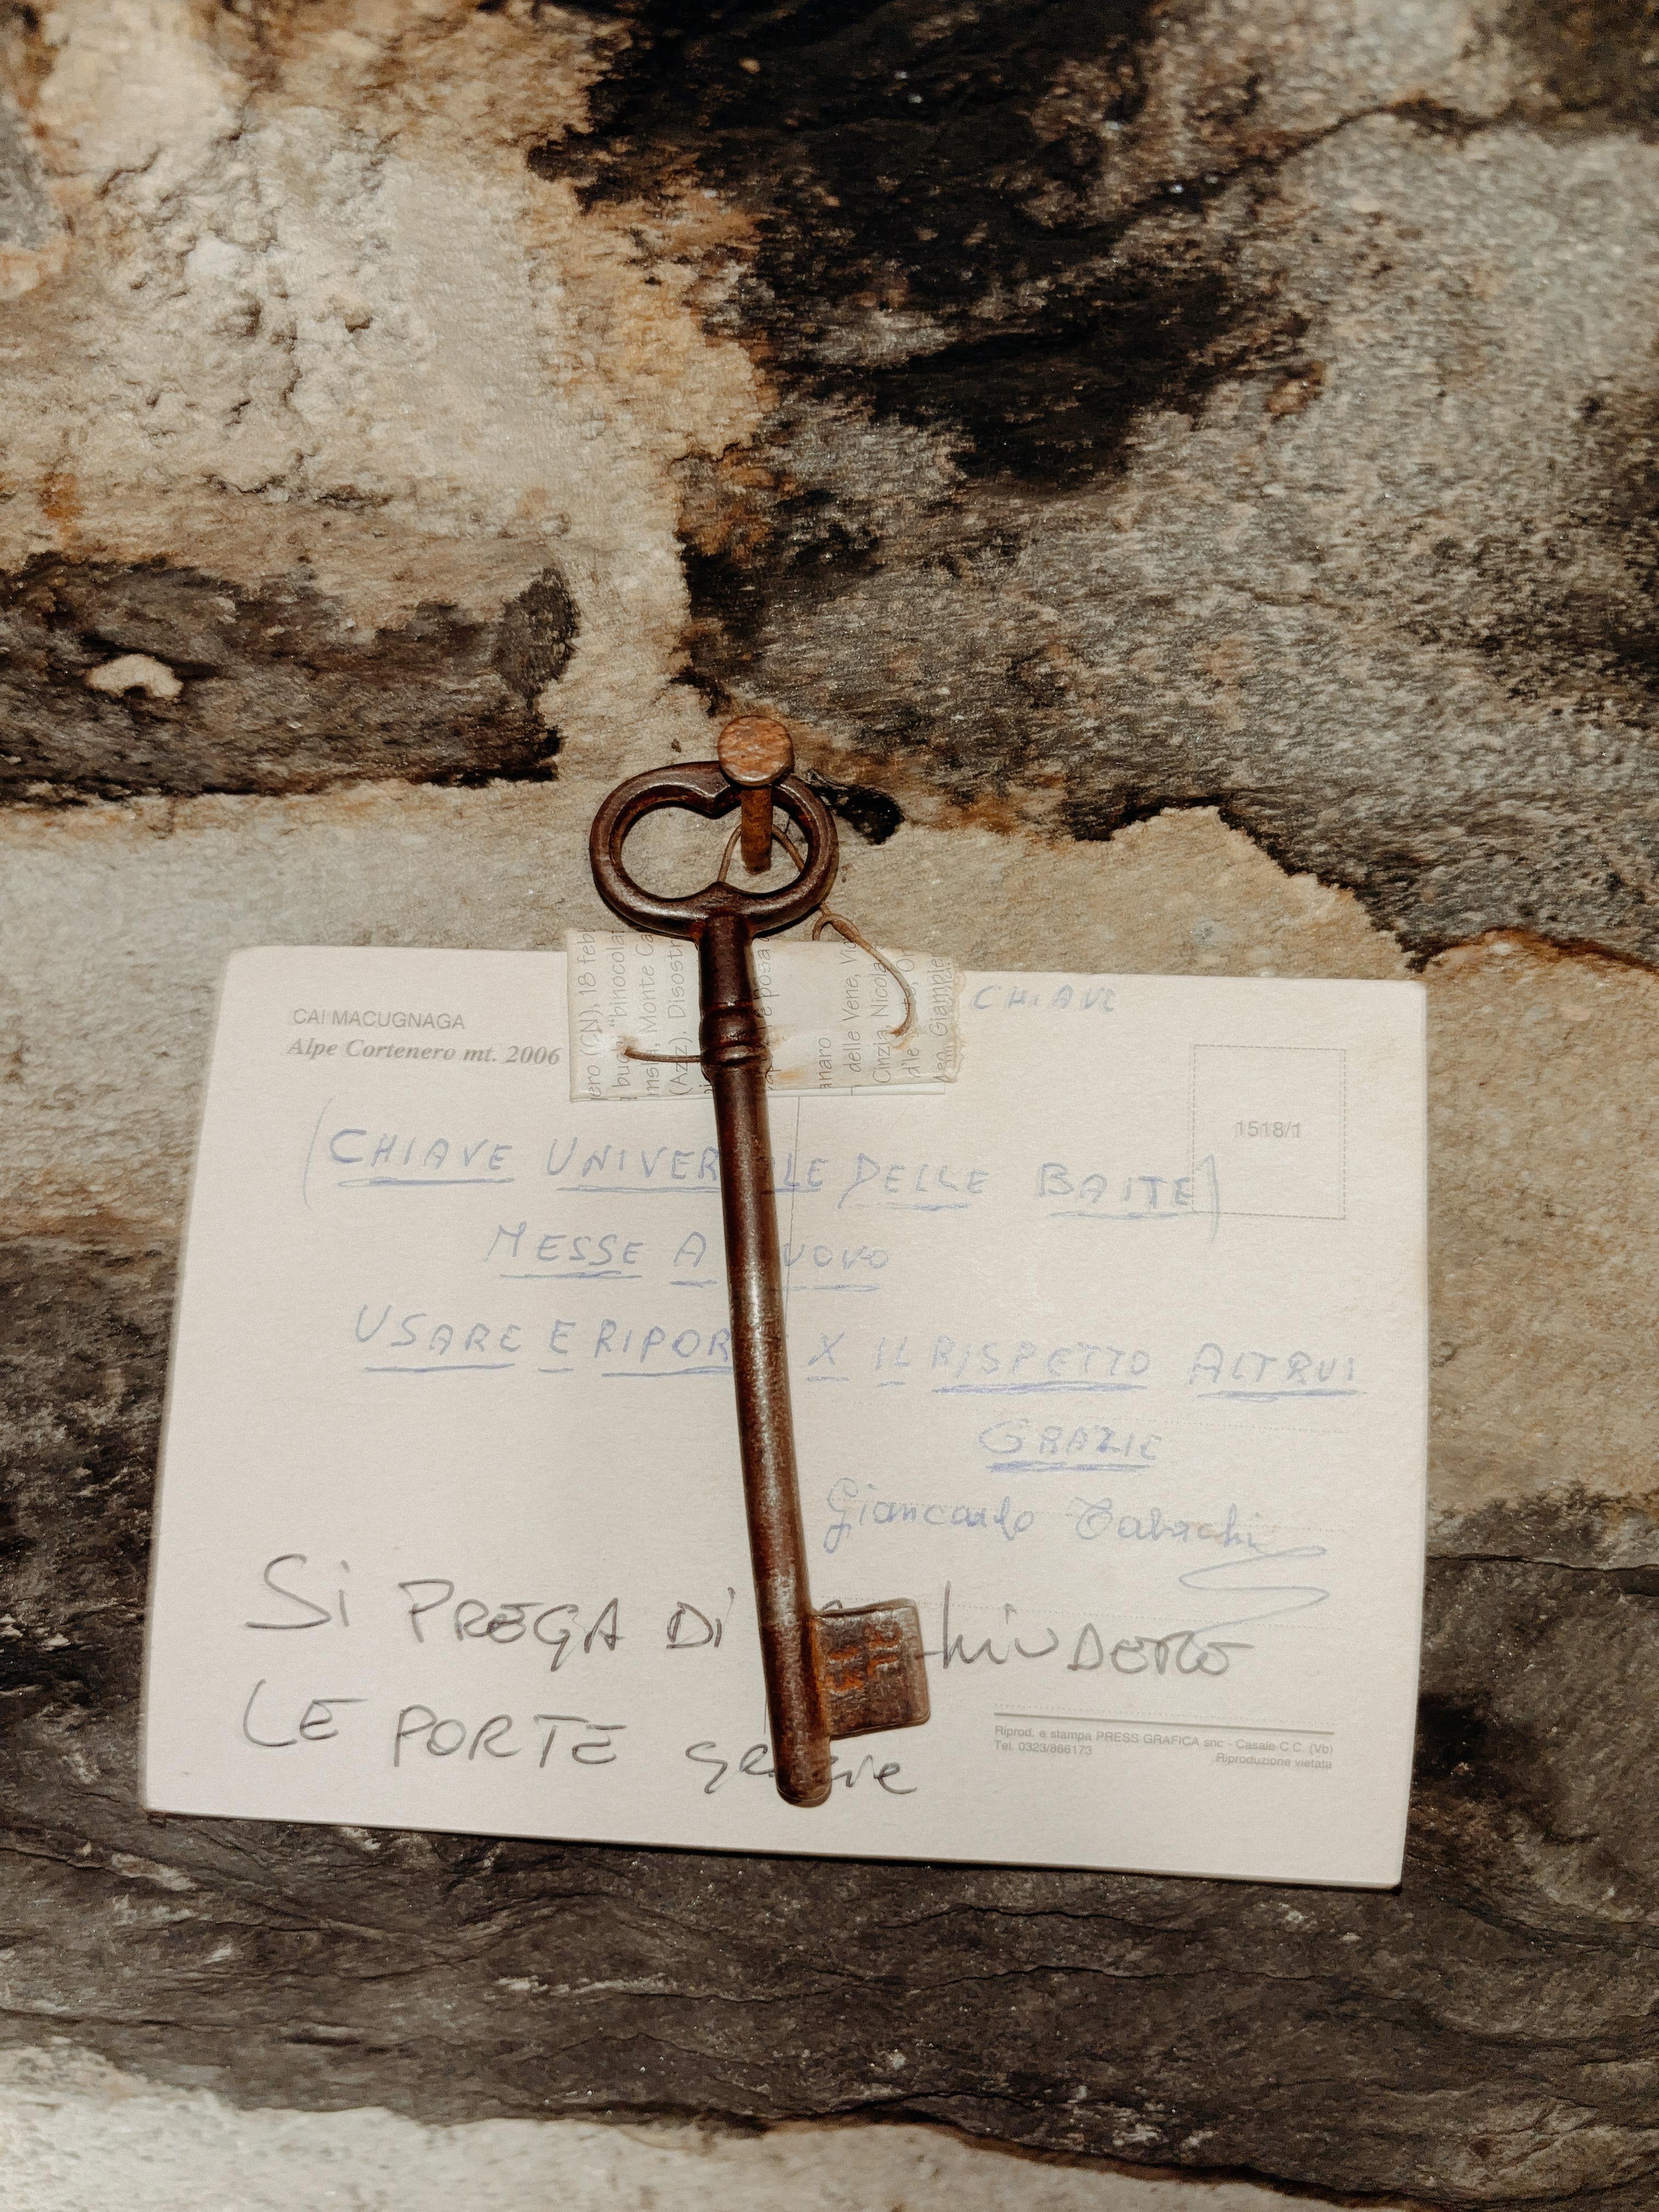 CHIAVE
CAI MACUGNAGA
Alpe Cortenero mt. 2006
ero (CN), 18 feb
buc "binocola
Monte Ca
(Az z). Disost
posa
anaro
delle Vene, Vi
Cinzia, Nicola
Giampie
1518/1
(CHIAVE UNIVER LE DELLE BAITE)
MESSE A UOVO
USARE E RIPOR X IL RISPETTO ALTRUI
GRAZIE
Giancarlo
Si PREGA Di hiUDERE
LE PORTE
Riprod. e stampa PRESS GRAFICA snc - Casale C.C. (Vb)
Tel. 0323/866173
Riproduzione vietata